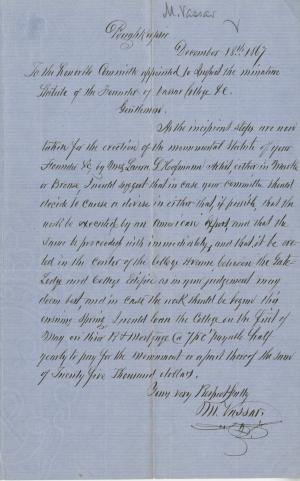 M. Vassar
Poughkeepsie
December 18th 1867
To the Honorable Committee appointed to Inspect the miniature
Statute of the Founder of Vassar College &c.
Gentlemen.
As the incipient steps are now
taken for the erection of the monumental Statute of your
Founder &c by Miss Laura S. Hofmann Artist, either in Marble
or Bronze, I would suggest that in case your committee should
decide to cause a in either that, if possible, that the
work be executed by an "American" Artist, and that the
same be proceeded with immediately, and that it be erec
ted in the center of the College Avenue, between the Gate
Lodge and College Edifice as in your judgement may
deem best, and in case the work should be begun this
ensuing Spring I would loan the College on the first of
May on their Bd & Mortgage @ 7 pr Ct payable half
yearly to pay for the Monument or a part thereof the sum
of Twenty five Thousand dollars.
Yours very Respectfully
M. Vassar